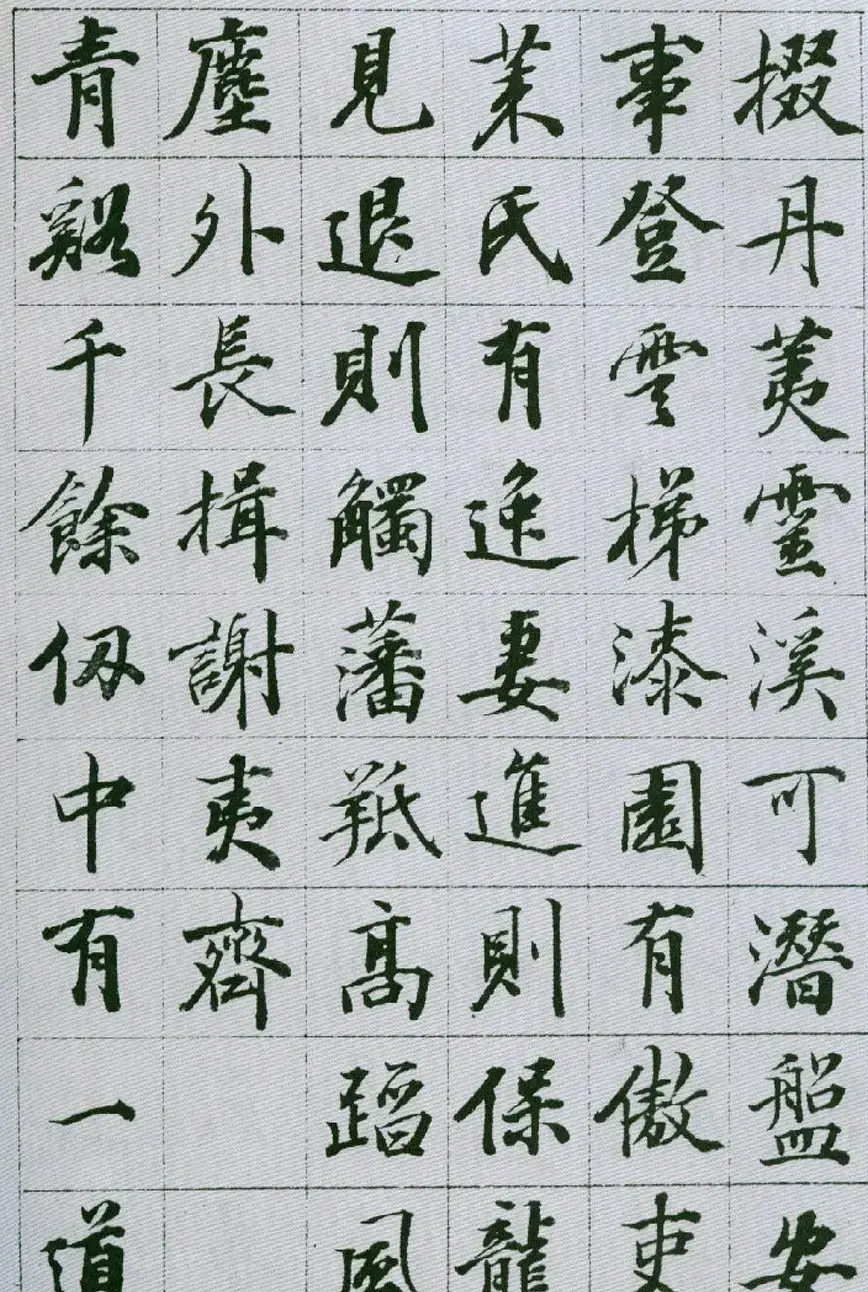 掇丹荑靈溪可潛盤安
事登雲梯漆園有傲吏
莱氏有逸妻進則保龍
見退則觸藩羝高蹈風
塵外長揖謝夷齊
青谿千餘仞中有一道